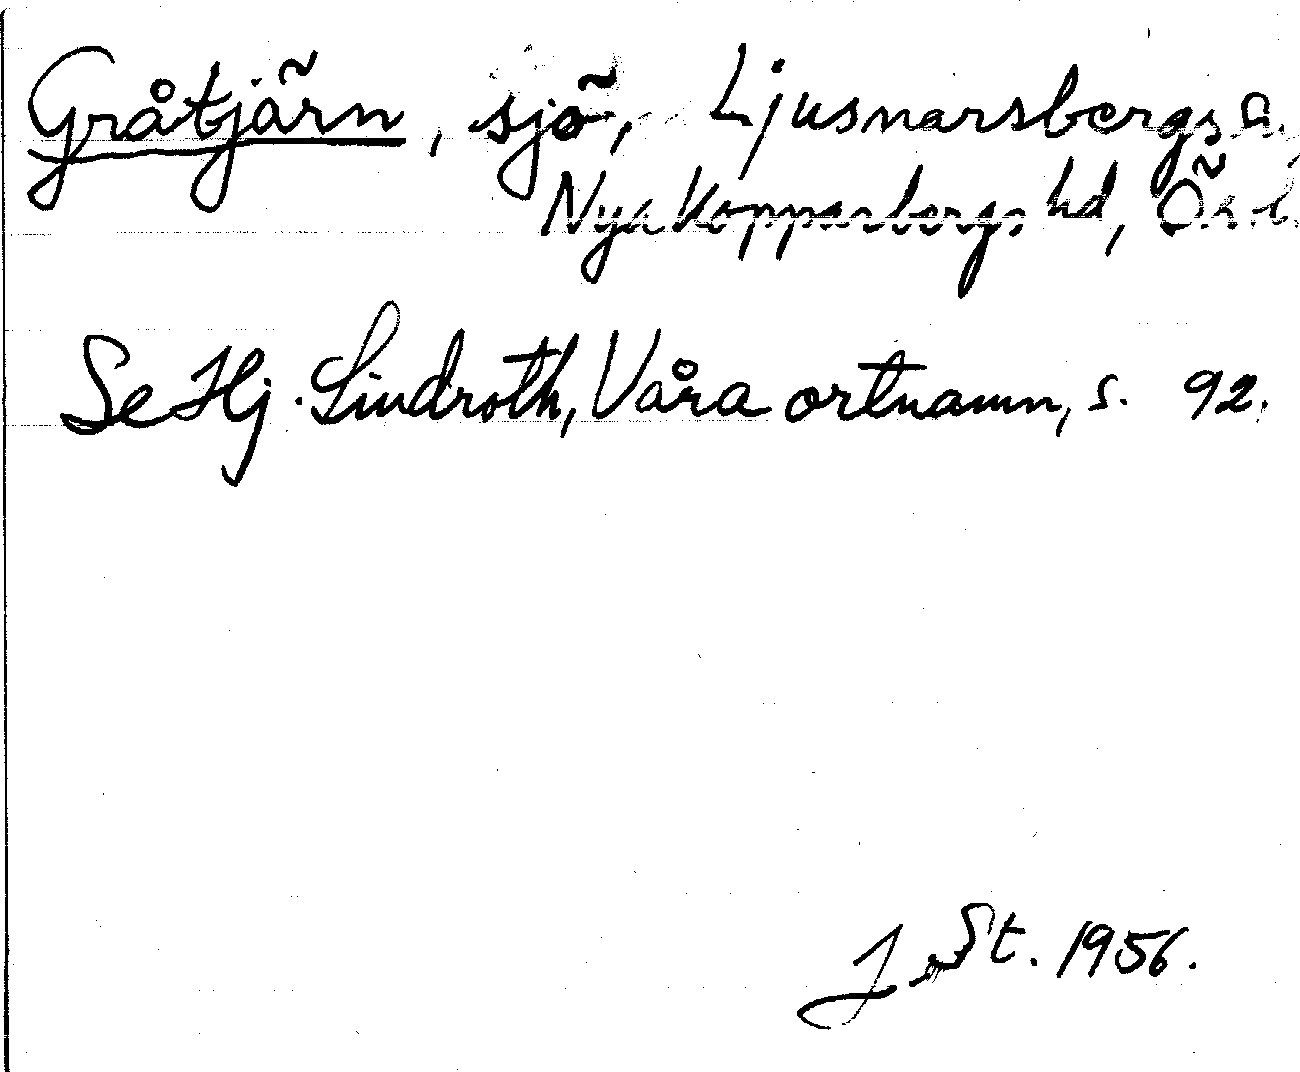 Gråtjärn, sjö, Ljusnarsbergs a.,
Nya Kopparbergs hd, Ör.l.
Se Hj. Lindroth, Våra ortnamn, s. 92.
J. St. 1956.